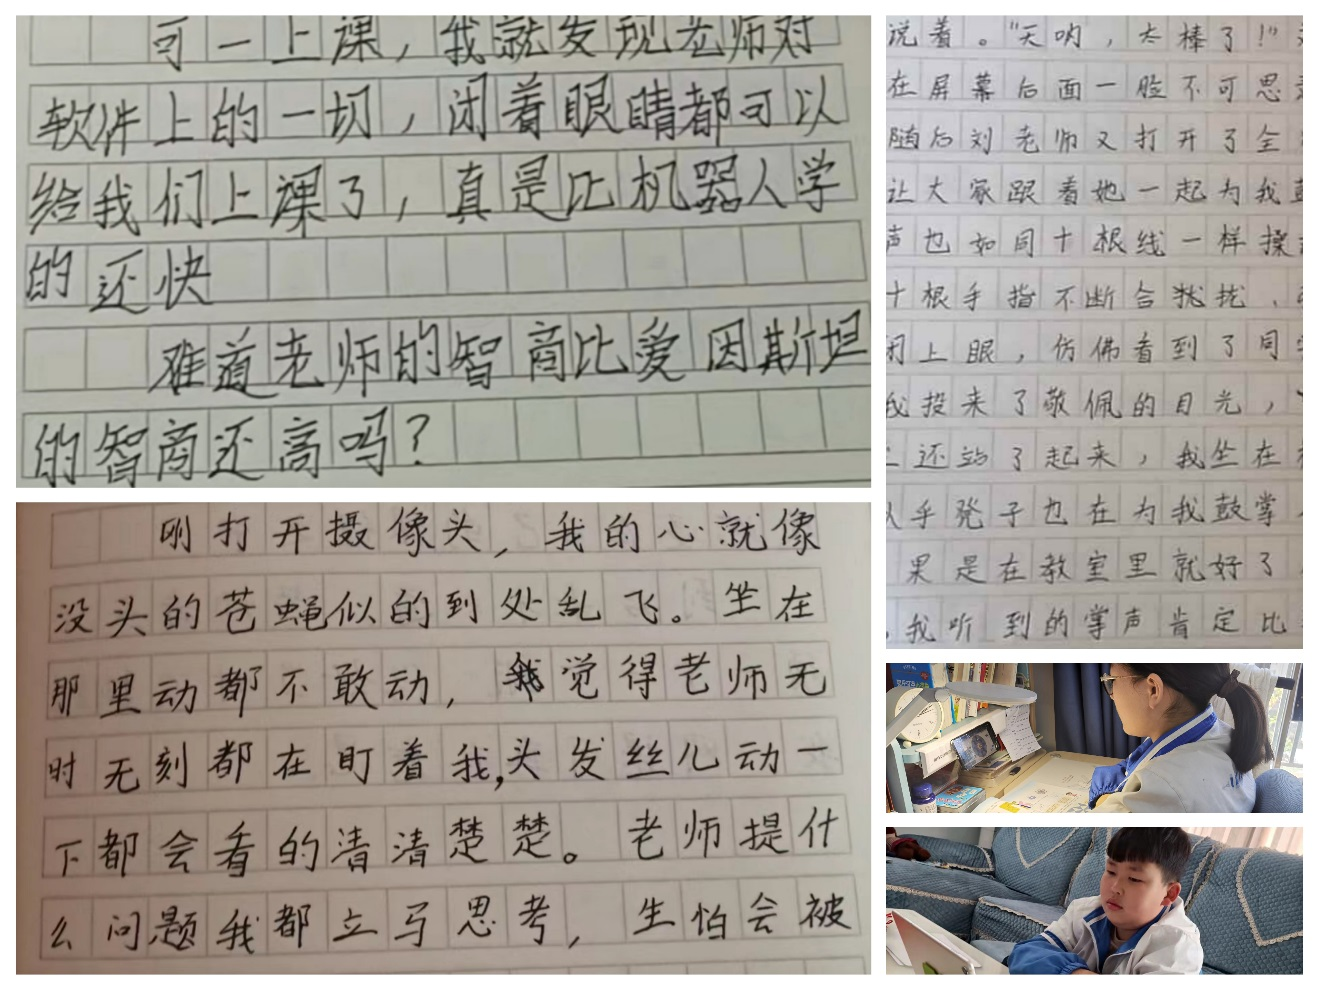 可一上课，我就发现老师对
软件上的一切，闭着眼睛都可以
给我们上课了，真是比机器人学
的还快
难道老师的智商比爱因斯坦
的智商还高吗？
刚打开摄像头，我的心就像
没头的苍蝇似的到处乱飞。坐在
那里动都不敢动，我觉得老师无
时无刻都在盯着我，头发丝儿动一
下都会看的清清楚楚。老师提什
么问题我都立马思考，生怕会被
说着。“天呐，太棒了！”
在屏幕后面一脸不可思
随后刘老师又打开了全
让大家跟着她一起为我
声也如同十根线一样
十根手指不断合拢，
闭上眼，仿佛看到了同
我投来了敬佩的目光，
还站了起来，我坐在
乎凳子也在为我鼓掌
果是在教室里就好了
我听到的掌声肯定比